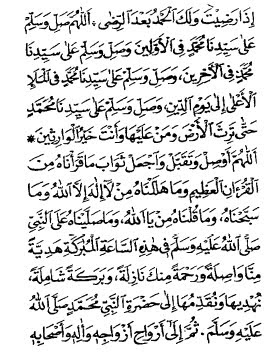 إِذَا رَضِيْتَ وَلَكَ الْحَمْدُ بَعْدَ الرِّضٰى، اَللّٰهُمَّ صَلِّ وَسَلِّمْ
عَلٰى سَيِّدِنَا مُحَمَّدٍ فِى الْأَوَّلِيْنَ وَصَلِّ وَسَلِّمْ عَلٰى سَيِّدِنَا
مُحَمَّدٍ فِى الْآخِرِيْنَ، وَصَلِّ وَسَلِّمْ عَلٰى سَيِّدِنَا مُحَمَّدٍ فِى الْمَلَإِ
الْأَعْلٰى إِلٰى يَوْمِ الدِّيْنِ، وَصَلِّ وَسَلِّمْ عَلٰى سَيِّدِنَا مُحَمَّدٍ
حَتّٰى تَرِثَ الْأَرْضَ وَمَنْ عَلَيْهَا وَأَنْتَ خَيْرُ الْوَارِثِيْنَ *
اَللّٰهُمَّ أَوْصِلْ وَتَقَبَّلْ وَاجْعَلْ ثَوَابَ مَا قَرَأْنَاهُ مِنَ
الْقُرْءَانِ الْعَظِيْمِ وَمَا هَلَّلْنَاهُ مِنْ لَا إِلٰهَ إِلَّا اللهُ وَمَا
سَبَّحْنَاهُ، وَمَا قُلْنَاهُ مِنْ يَا اللهُ، وَمَا صَلَّيْنَاهُ عَلَى النَّبِيِّ
صَلَّى اللهُ عَلَيْهِ وَسَلَّمَ فِى هٰذِهِ السَّاعَةِ الْمُبَرَكَةِ هَدِيَّةً
مِنَّا وَاصِلَةً وَرَحْمَةً مِنْكَ نَازِلَةً، وَبَرَكَةً شَامِلَةً،
نُهْدِيْهَا وَنُقَدِّمُهَا إِلٰى حَضْرَةِ النَّبِيِّ مُحَمَّدٍ صَلَّى اللهُ
عَلَيْهِ وَسَلَّمَ. ثُمَّ إِلٰى أَرْوَاحِ أَزْوَاجِهِ وَاٰلِهِ وَأَصْحَابِهِ